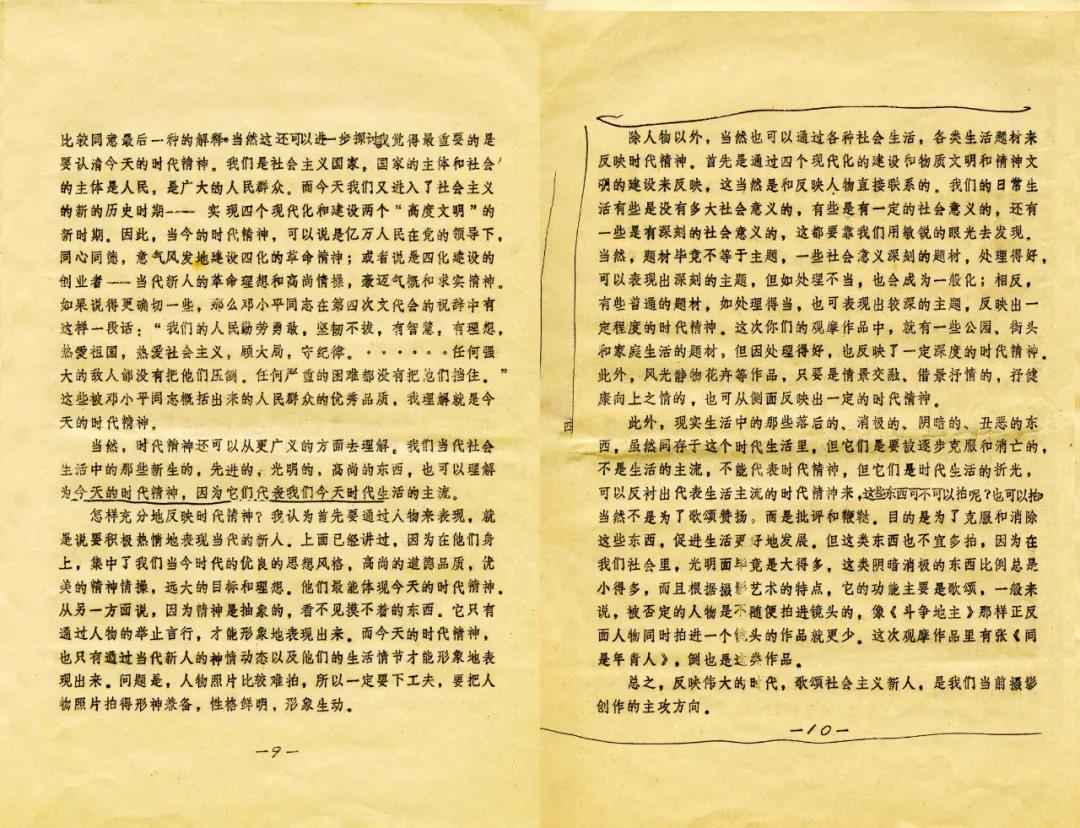 比较同意最后一种的解释。当然这还可以进一步探讨我觉得最重要的是
要认清今天的时代精神。我们是社会主义国家，国家的主体和社会
的主体是人民，是广大的人民群众。而今天我们又进入了社会主义
的新的历史时期——实现四个现代化和建设两个“高度文明”的
新时期。因此，当今的时代精神，可以说是亿万人民在党的领导下，
同心同德，意气风发地建设四化的革命精神；或者说是四化建设的
创业者——当代新人的革命理想和高尚情操，豪迈气概和求实精神。
如果说得更确切一些，那么邓小平同志在第四次文代会的祝辞中有
这样一段话：“我们的人民勤劳勇敢，坚韧不拔，有智慧，有理想，
热爱祖国，热爱社会主义，顾大局，守纪律。······任何强
大的敌人都没有把他们压倒。任何严重的困难都没有把他们挡住。”
这些被邓小平同志概括出来的人民群众的优秀品质，我理解就是今
天的时代精神。
当然，时代精神还可以从更广义的方面去理解。我们当代社会
生活中的那些新生的，先进的，光明的，高尚的东西，也可以理解
为今天的时代精神，因为它们代表我们今天时代生活的主流。
怎样充分地反映时代精神？我认为首先要通过人物来表现，就
是说要积极热情地表现当代的新人。上面已经讲过，因为在他们身
上，集中了我们当今时代的优良的思想风格，高尚的道德品质，优
美的精神情操，远大的目标和理想。他们最能体现今天的时代精神。
从另一方面说，因为精神是抽象的，看不见摸不着的东西。它只有
通过人物的举止言行，才能形象地表现出来。而今天的时代精神，
也只有通过当代新人的神情动态以及他们的生活情节才能形象地表
现出来。问题是，人物照片比较难拍，所以一定要下工夫，要把人
物照片拍得形神兼备，性格鲜明，形象生动。
—9—
除人物以外，当然也可以通过各种社会生活，各类生活题材来
反映时代精神。首先是通过四个现代化的建设和物质文明和精神文
明的建设来反映，这当然是和反映人物直接联系的。我们的日常生
活有些是没有多大社会意义的，有些是有一定的社会意义的，还有
一些是有深刻的社会意义的，这都要靠我们用敏锐的眼光去发现。
当然，题材毕竟不等于主题，一些社会意义深刻的题材，处理得好，
可以表现出深刻的主题，但如处理不当，也会成为一般化；相反，
有些普通的题材，如处理得当，也可表现出较深的主题，反映出一
定程度的时代精神。这次你们的观摩作品中，就有一些公园、街头
和家庭生活的题材，但因处理得好，也反映了一定深度的时代精神。
此外，风光静物花卉等作品，只要是情景交融、借景抒情的，抒健
康向上之情的，也可从侧面反映出一定的时代精神。
此外，现实生活中的那些落后的、消极的、阴暗的、丑恶的东
西，虽然同存于这个时代生活里，但它们是要被逐步克服和消亡的，
不是生活的主流，不能代表时代精神，但它们是时代生活的折光，
可以反衬出代表生活主流的时代精神来，这些东西可不可以拍呢？也可以拍
当然不是为了歌颂赞扬。而是批评和鞭挞。目的是为了克服和消除
这些东西，促进生活更好地发展。但这类东西也不宜多拍，因为在
我们社会里，光明面毕竟是大得多，这类阴暗消极的东西比例总是
小得多，而且根据摄影艺术的特点，它的功能主要是歌颂，一般来
说，被否定的人物是不随便拍进镜头的，像《斗争地主》那样正反
面人物同时拍进一个镜头的作品就更少。这次观摩作品里有张《同
是年青人》，倒也是这类作品。
总之，反映伟大的时代，歌颂社会主义新人，是我们当前摄影
创作的主攻方向。
—10—